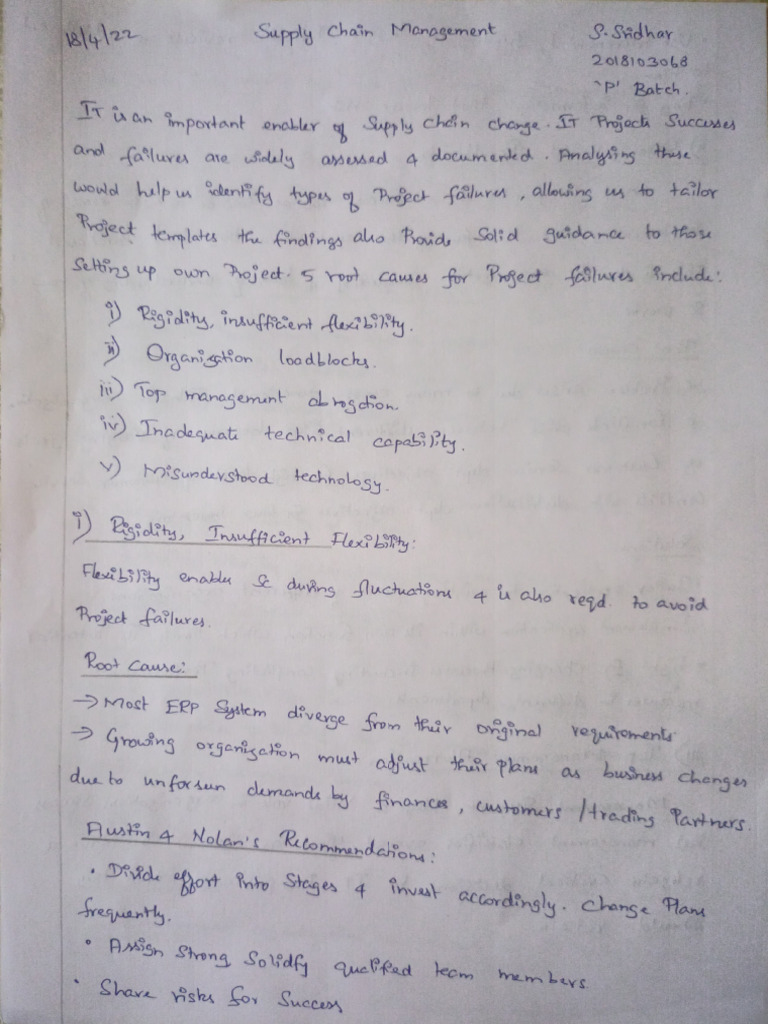 18/4/22 Supply Chain Management S. Sridhar
2018103068
'P' Batch.
IT is an important enabler of Supply Chain change. IT Projects Successes
and failures are widely assessed & documented. Analysing these
would help us identify types of Project failures, allowing us to tailor
Project templates the findings also Provide Solid guidance to those
Setting up own Project. 5 root causes for Project failures include:
i) Rigidity, insufficient flexibility.
ii) Organization loadblocks.
iii) Top management abrogation.
iv) Inadequate technical capability.
v) Misunderstood technology.
i) Rigidity, Insufficient Flexibility:
Flexibility enables SC during fluctuations & is also reqd. to avoid
Project failures.
Root Cause:
→ Most ERP System diverge from their original requirements
→ Growing organization must adjust their plans as business changes
due to unforseen demands by finances, customers / trading Partners.
Austin & Nolan's Recommendations:
• Divide effort into Stages & invest accordingly. Change Plans
frequently.
• Assign Strong Solidfy qualified team members.
• Share risks for Success